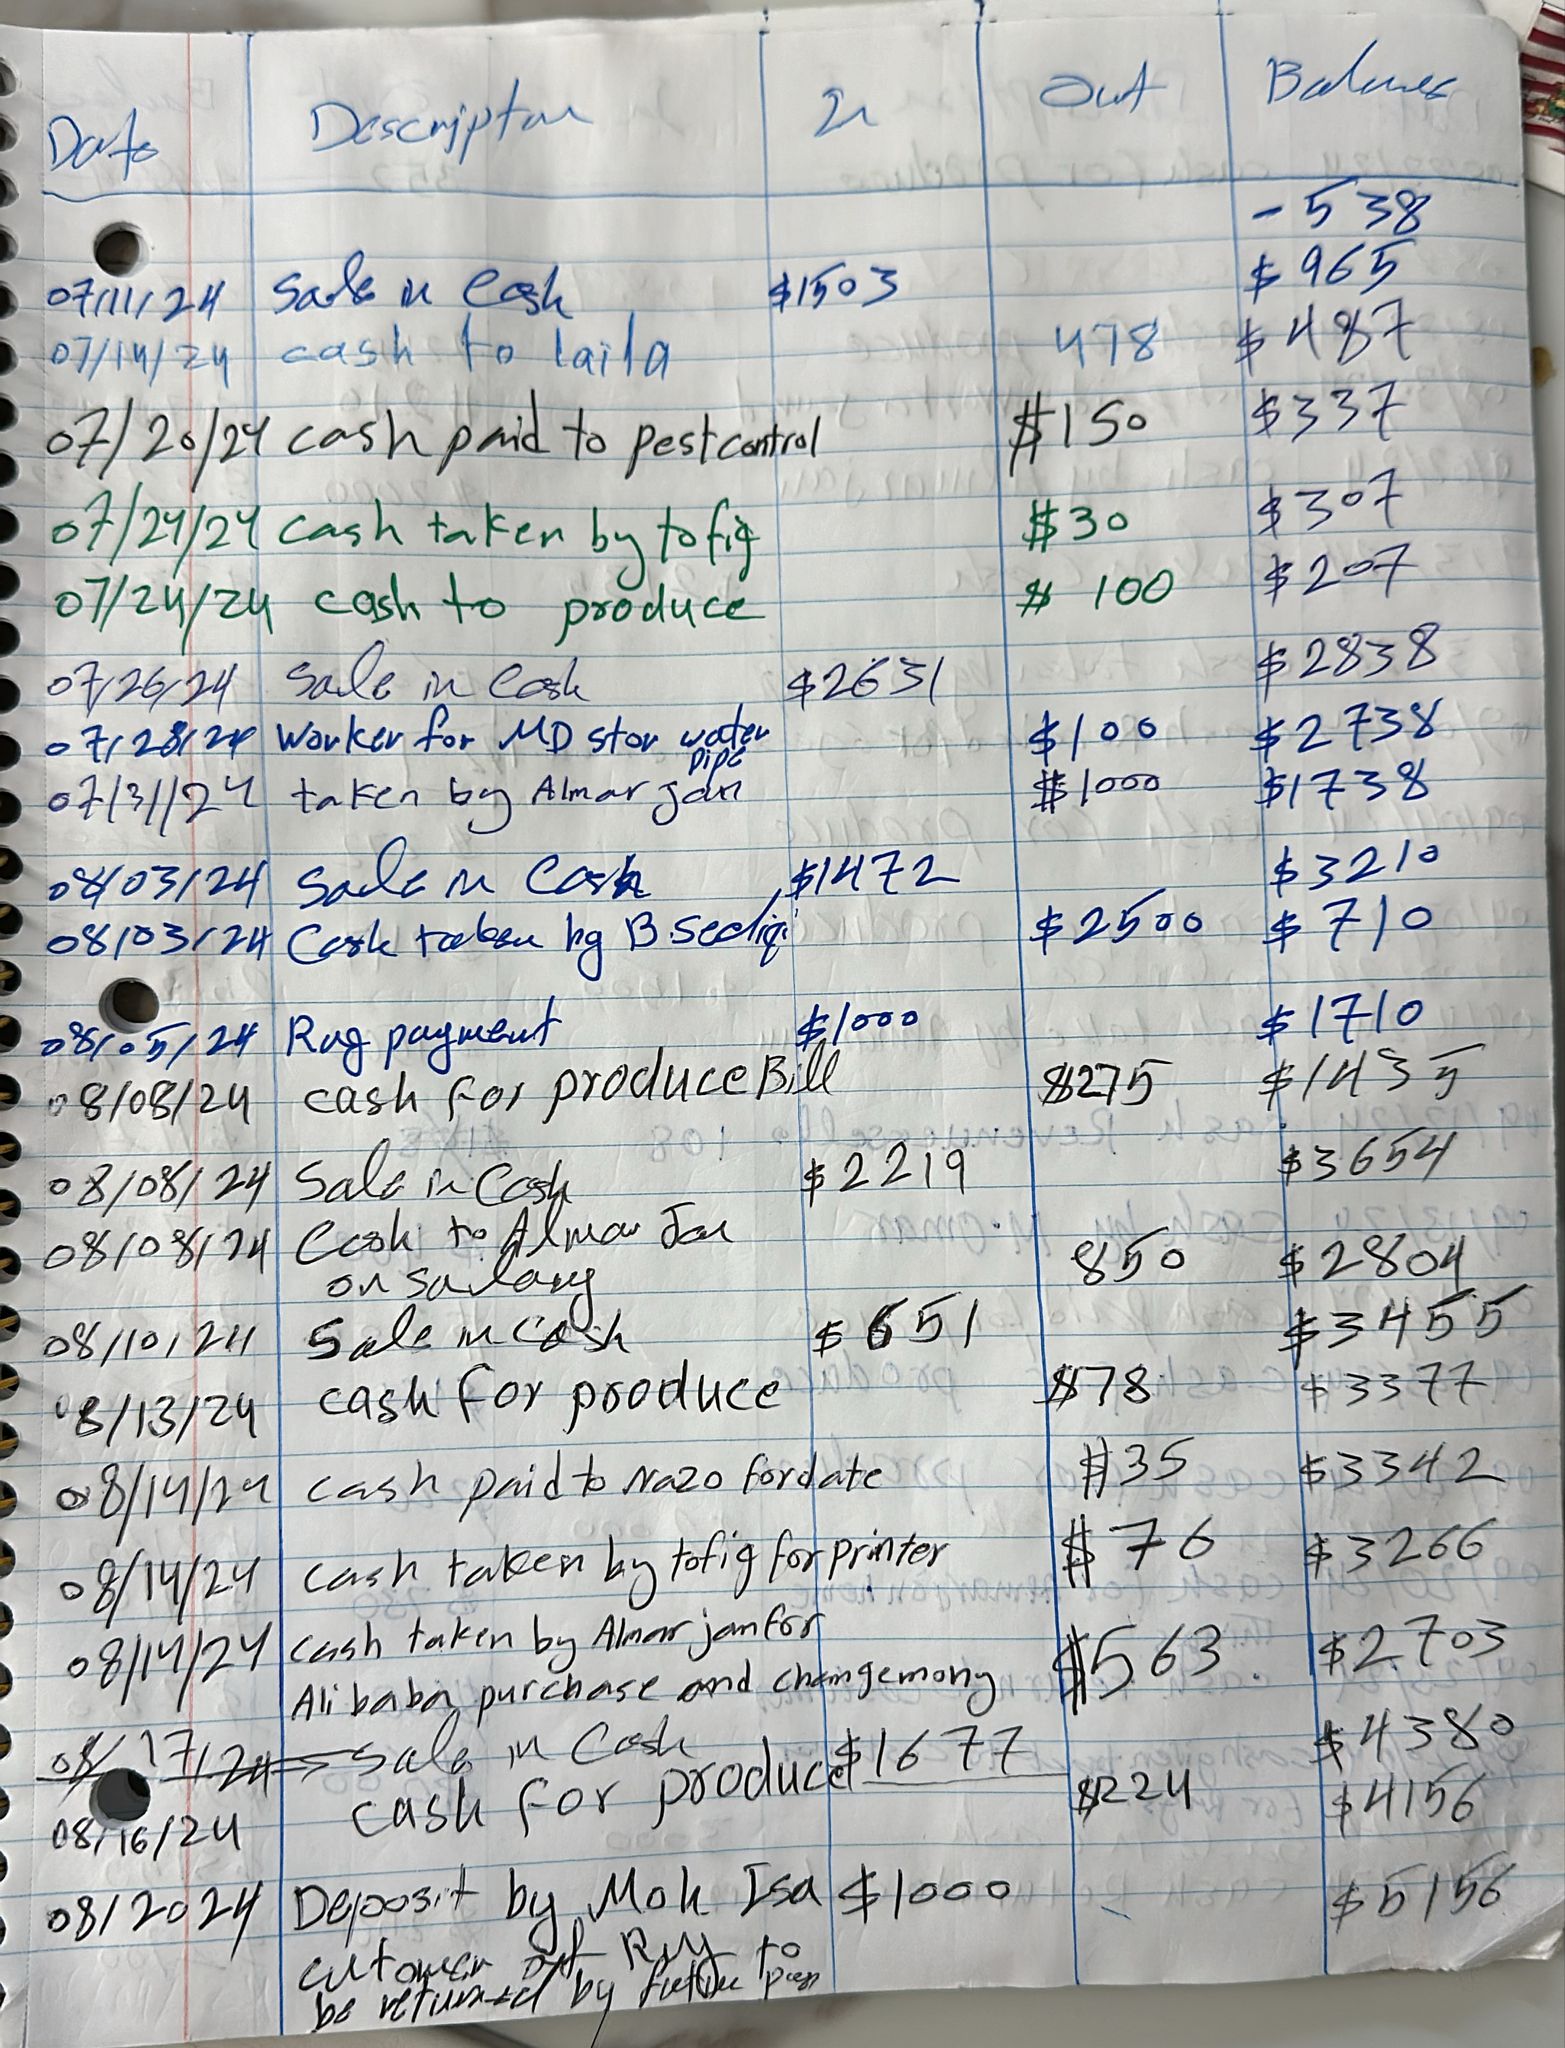 Date Description In Out Balance
- 538
07/11/24 Sale in Cash $1503 $965
07/14/24 cash to laila 478 $487
07/20/24 cash paid to pest control $150 $337
07/24/24 cash taken by tofig $30 $307
07/24/24 cash to produce $100 $207
07/26/24 Sale in Cash $2631 $2838
07/28/24 Worker for MD stor water $100 $2738
pipe
07/31/24 taken by Almar jan $1000 $1738
08/03/24 Sale in Cash $1472 $3210
08/03/24 Cash taken by B.Sediqi $2500 $710
08/05/24 Rug payment $1000 $1710
08/08/24 cash for produce Bill $275 $1435
08/08/24 Sale in Cash $2219 $3654
08/08/24 Cash to Almar Jan 850 $2804
on salary
08/10/24 Sale in Cash $651 $3455
08/13/24 cash for produce $78 $3377
08/14/24 cash paid to Nazo for date $35 $3342
08/14/24 cash taken by tofig for printer $76 $3266
08/14/24 cash taken by Almar jan for $563 $2703
Ali baba purchase and change mony
08/17/24 Sale in Cash $1677 $4380
08/16/24 cash for produce $224 $4156
08/2024 Deposit by Moh Isa $1000 $5156
cutomer of Rug to
be returned by future